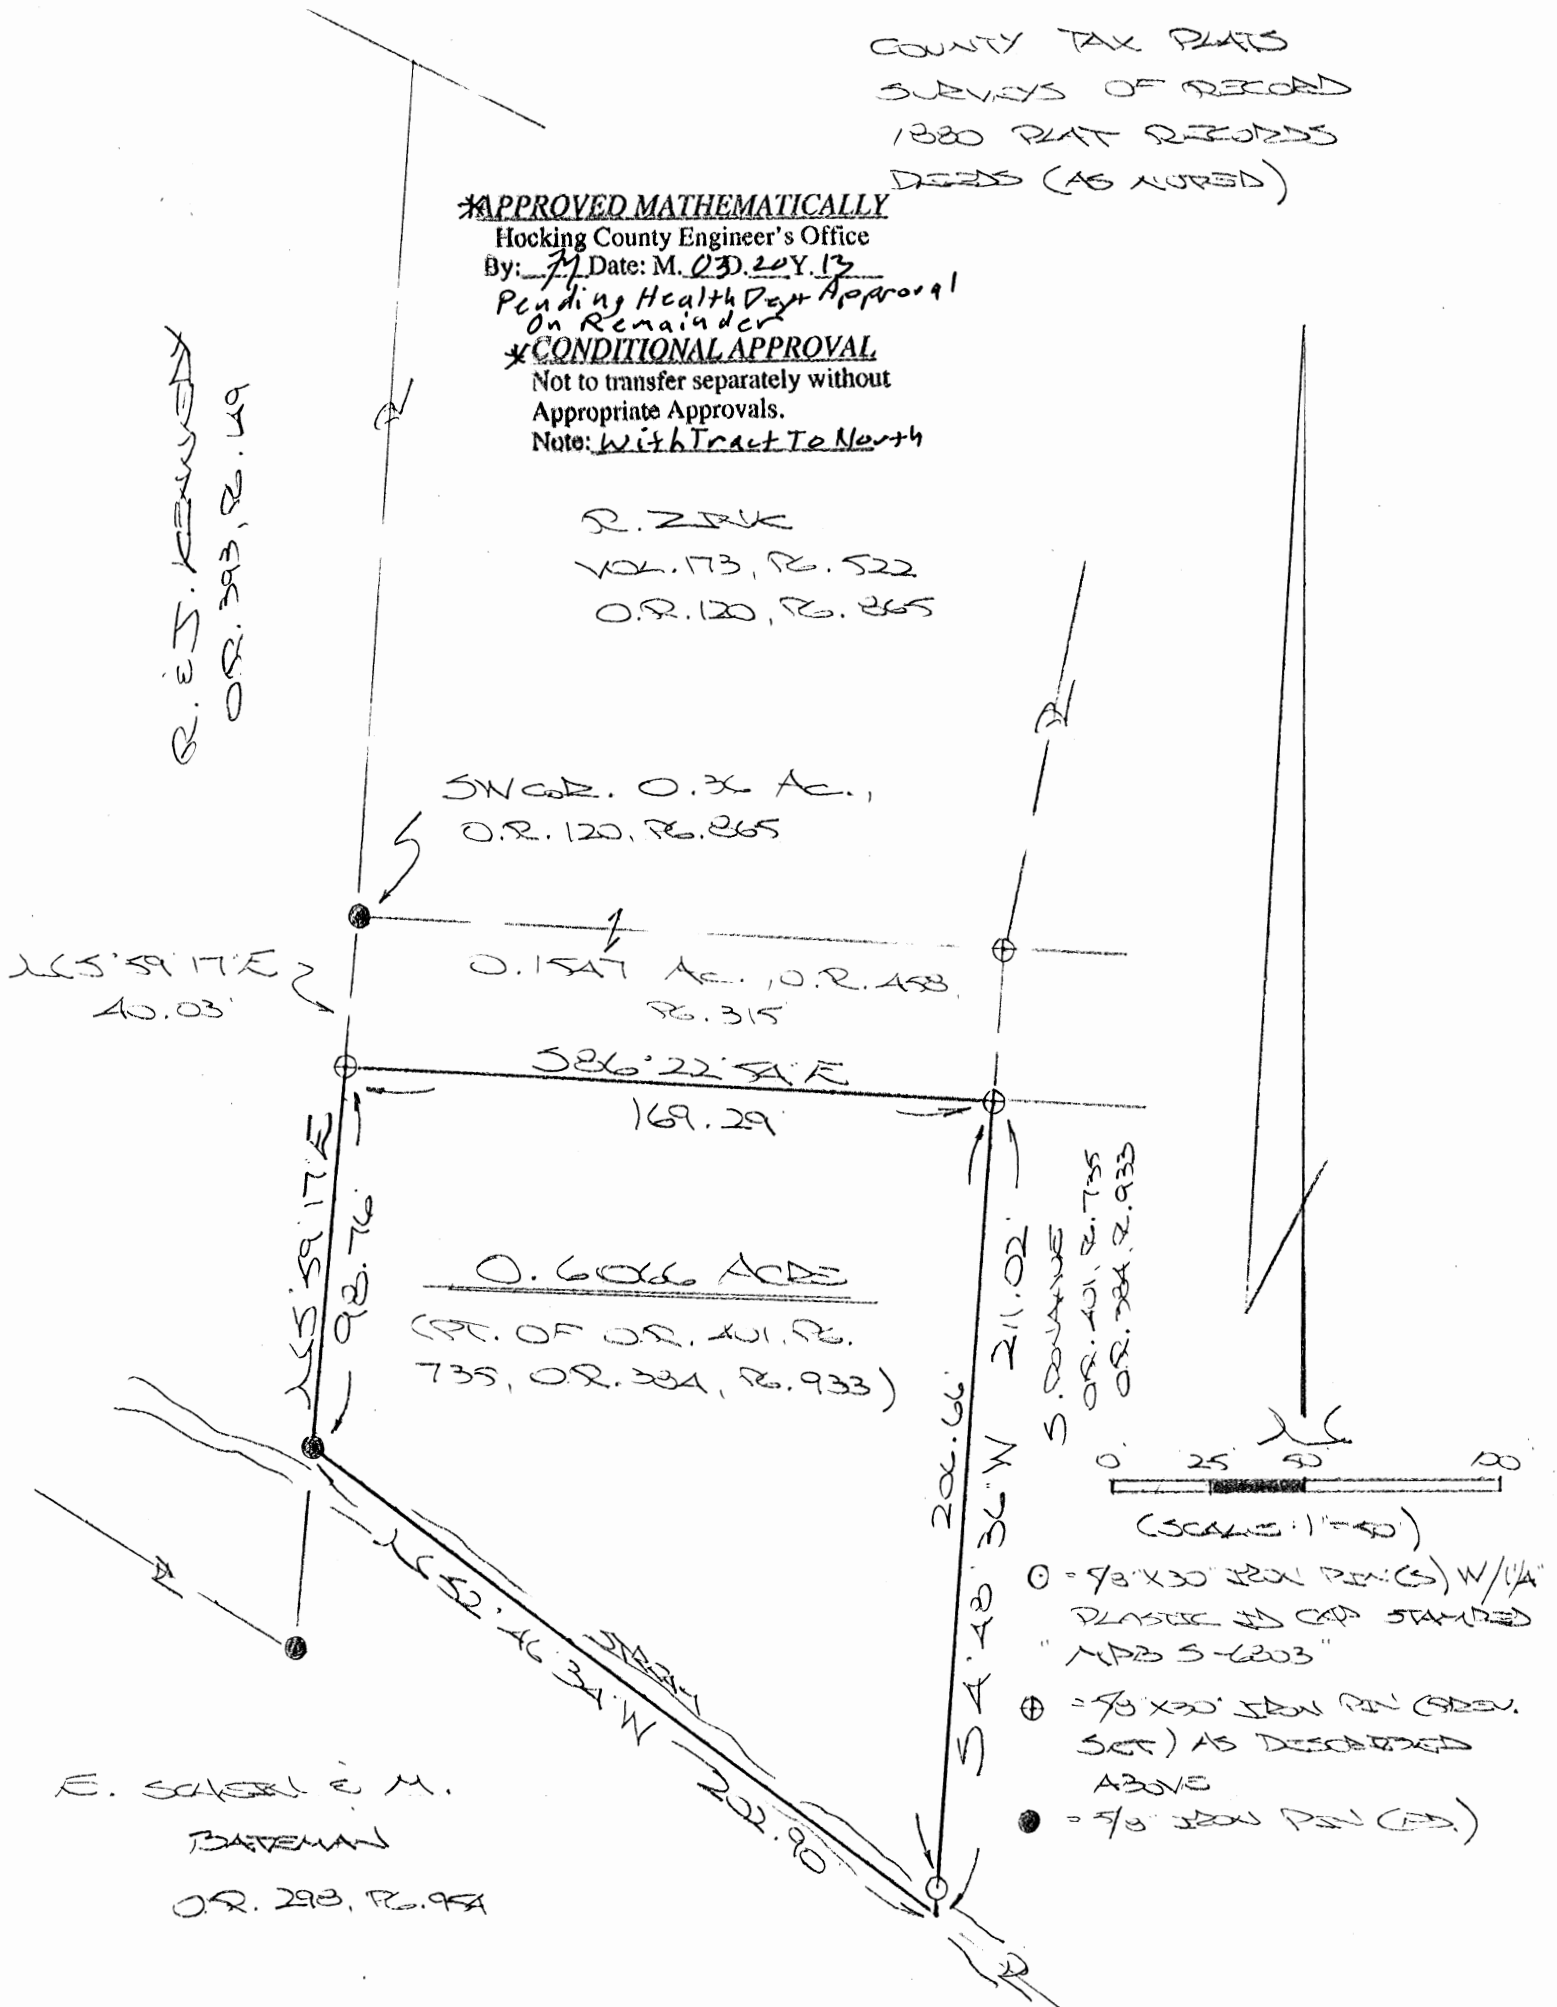 COUNTY TAX PLATS
SURVEYS OF RECORD
1880 PLAT RECORDS
DEEDS (AS NOTED)
*APPROVED MATHEMATICALLY
Hocking County Engineer's Office
By: Date: M. 03 D. 20 Y. 13
Pending Health Dept Approval
On Remainder
*CONDITIONAL APPROVAL
Not to transfer separately without
Appropriate Approvals.
Note: With Tract To North
R. & J. KENNEDY
O.R. 393, PG. 49
R. ZINK
VOL. 173, PG. 522
O.R. 120, PG. 865
SW COR. 0.36 AC.,
O.R. 120, PG. 865
N 5° 59' 17" E
40.03'
0.1547 AC., O.R. 458,
PG. 315
S 86° 22' 54" E
169.29'
N 5° 59' 17" E
98.76'
0.6066 ACRE
(PT. OF O.R. 401, PG.
735, O.R. 384, PG. 933)
206.66'
S 4° 48' 36" W 211.02'
S.
O.R. 401, PG. 735
O.R. 384, PG. 933
N
0' 25' 50' 100'
(SCALE: 1" = 50')
= 5/8" X 30" IRON PIN(S) W/ 1 1/4"
PLASTIC ID CAP STAMPED
"MPB S-6803"
= 5/8" X 30" IRON PIN (PREV.
SET) AS DESCRIBED
ABOVE
= 5/8" IRON PIN (FD.)
N 52° 46' 34" W 202.90'
E. & M.
BATEMAN
O.R. 298, PG. 954